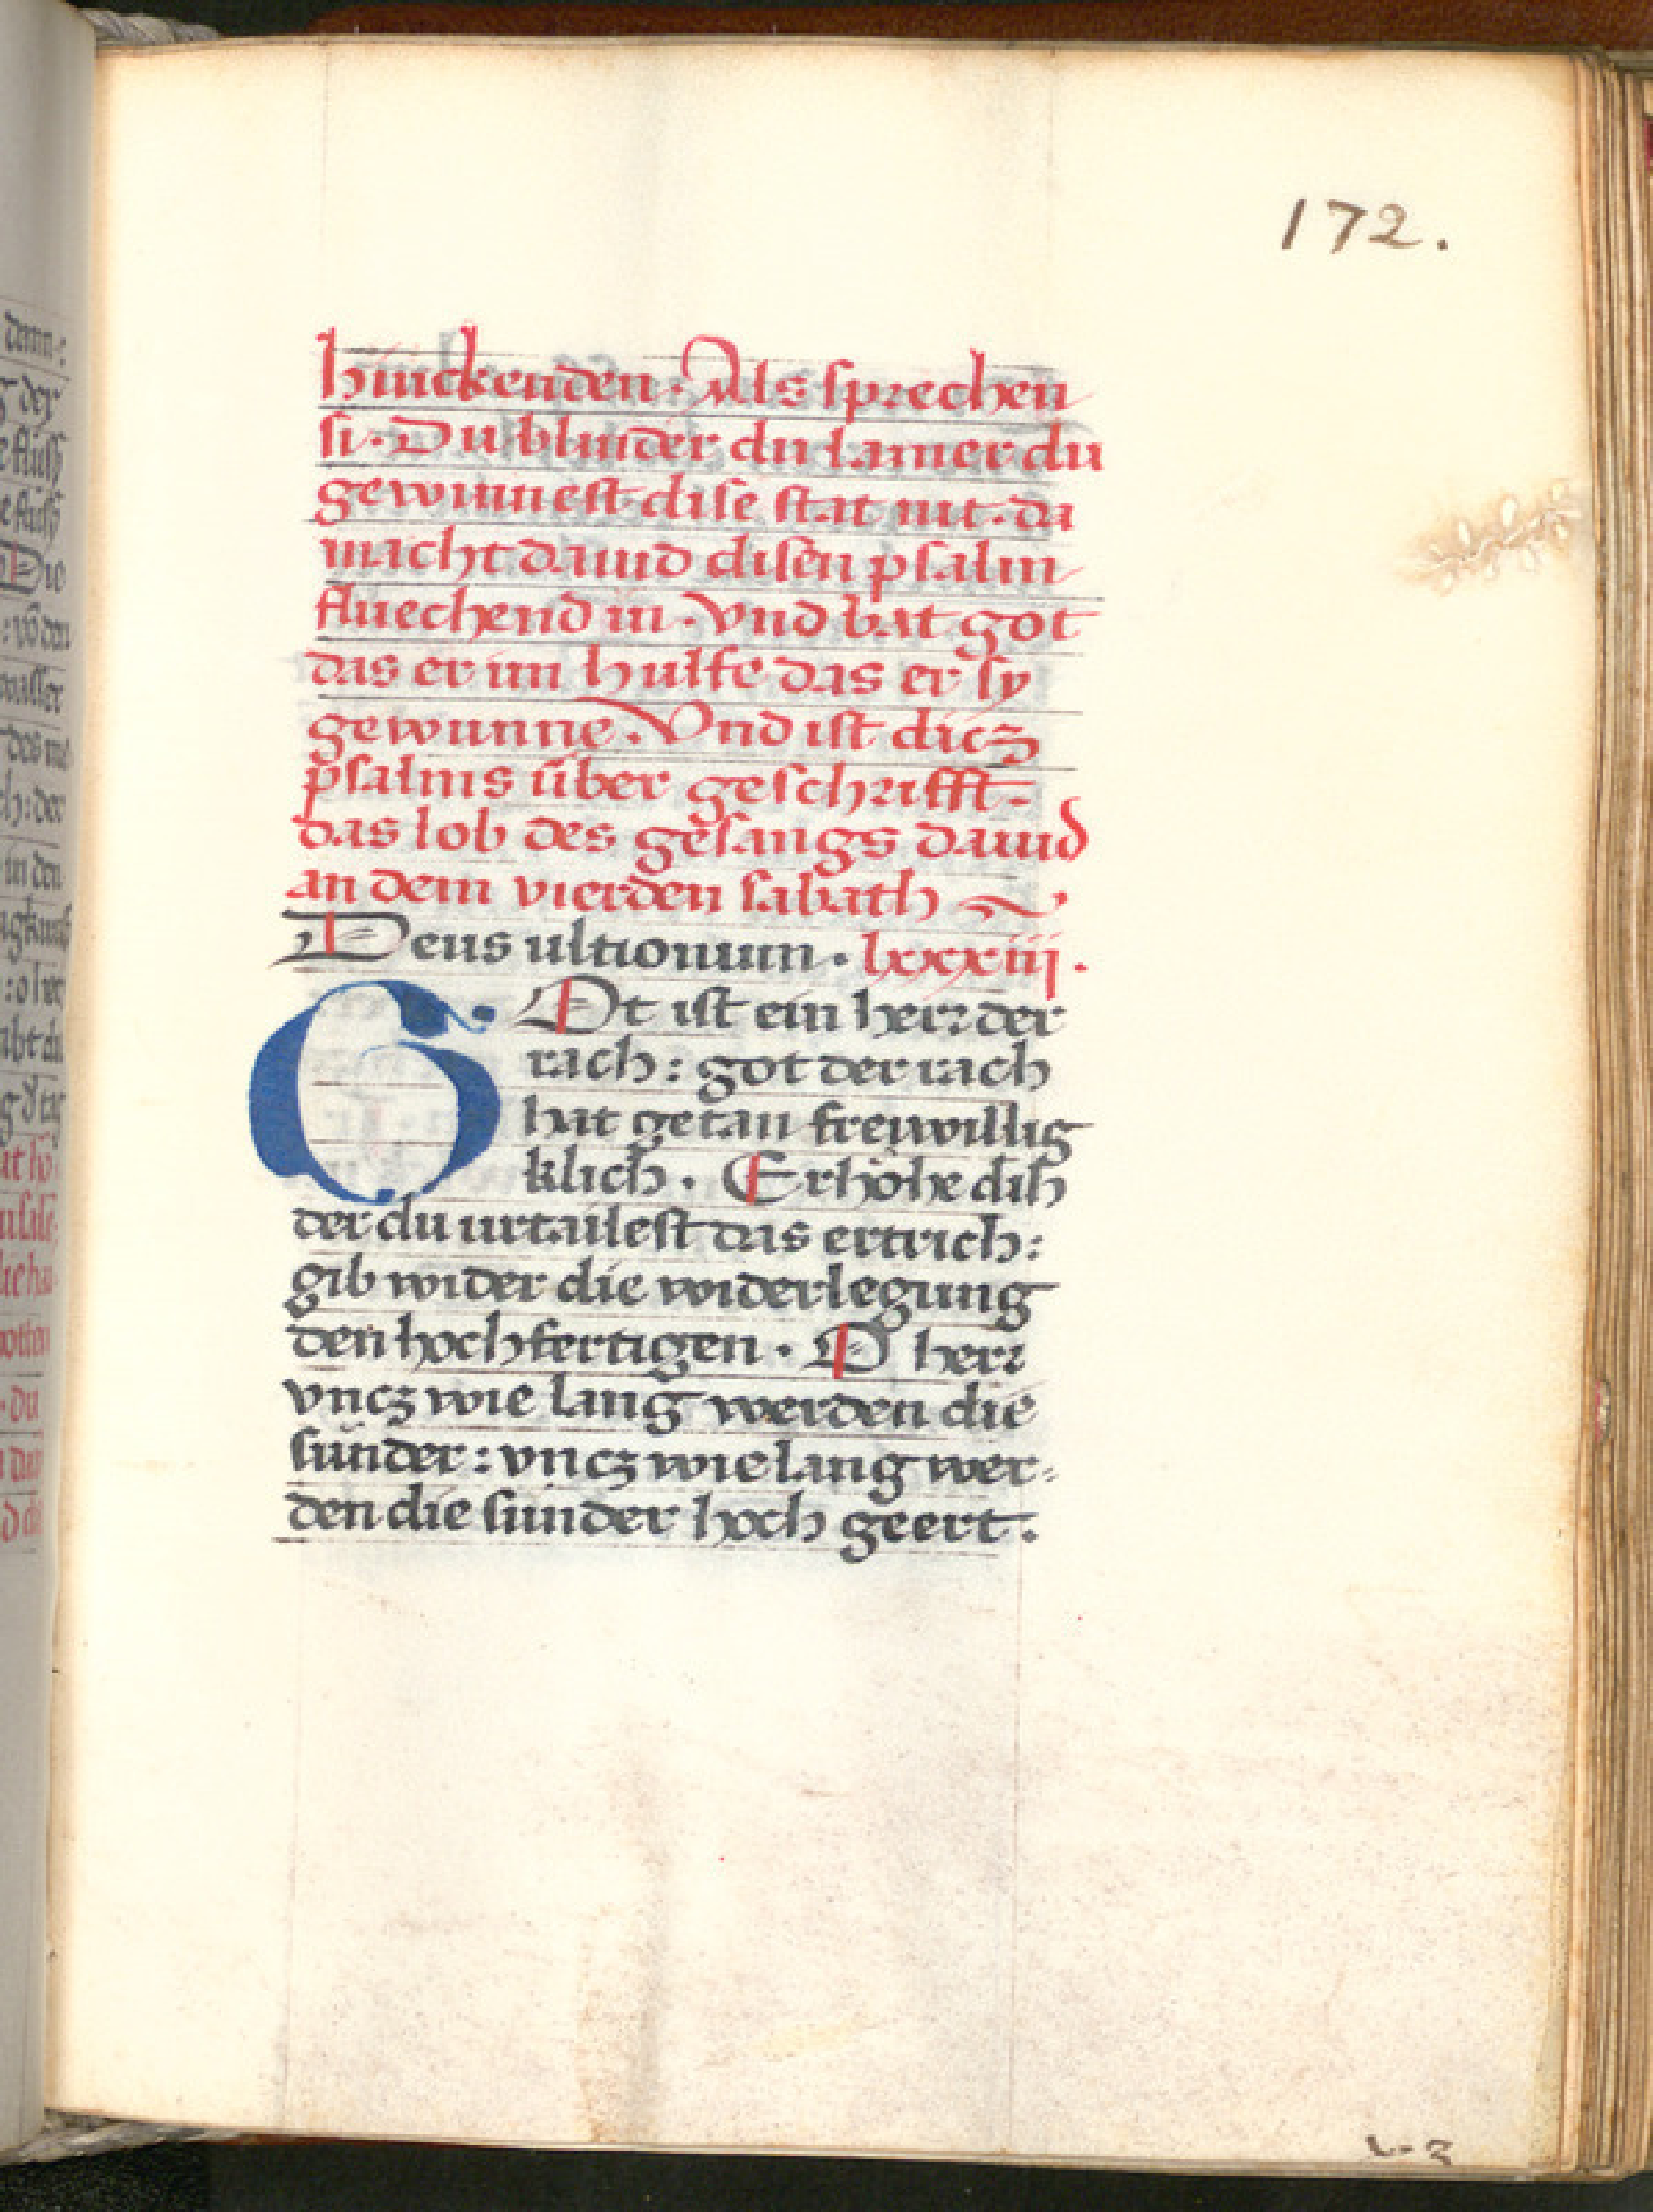 172.
hinckenden. Als sprechen
si. Du blinder du lamer du
gewinnest dise stat nit. da
macht dauid disen psalm
fluechend in. Vnd bat got
das er im hulfe das er sy
gewunne. Vnd ist dicz
psalms über geschrifft.
das lob des gesangs dauid
an dem vierden sabath
Deus ultionum. lxxxiiij.
GOt ist ein herr der
rach: got der rach
hat getan freiwillig
klich. Erhöhe dih
der du urtailest das ertrich:
gib wider die widerlegung
den hochfertigen. O herr
vncz wie lang werden die
sünder: vncz wie lang wer-
den die sünder hoch geert.